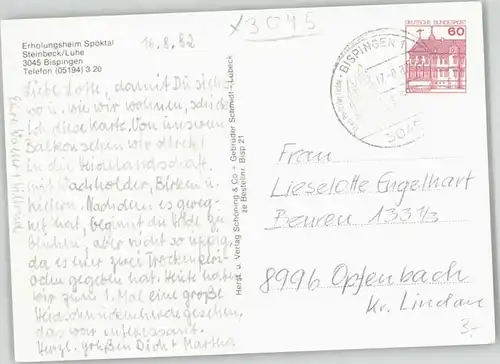 Erholungsheim Spöktal
Steinbeck/Luhe
3045 Bispingen
Telefon (05194) 3 20
x3045
16.8.82
Liebe Lotte, damit Du siehst
wo u. wie wir wohnen, schicke
ich diese Karte. Von unserem
Balkon sehen wir direkt
in die Heidelandschaft
mit Wacholder, Birken u.
Kiefern. Nachdem es gereg-
net hat, beginnt die Heide zu
blühen, aber nicht so üppig,
da es hier zwei Trockenperi-
oden gegeben hat. Heute haben
wir zum 1. Mal eine große
Heidschnuckenherde gesehen,
das war interessant.
Herzl. grüßen Dich Martha
Herst. u. Verlag Schöning & Co + Gebrüder Schmidt · Lübeck
ze Bestellnr. Bisp 21
BISPINGEN 1
3045
DEUTSCHE BUNDESPOST
60
Frau
Lieselotte Engelhart
Beuren 133 1/3
8996 Opfenbach
Kr. Lindau
3,-